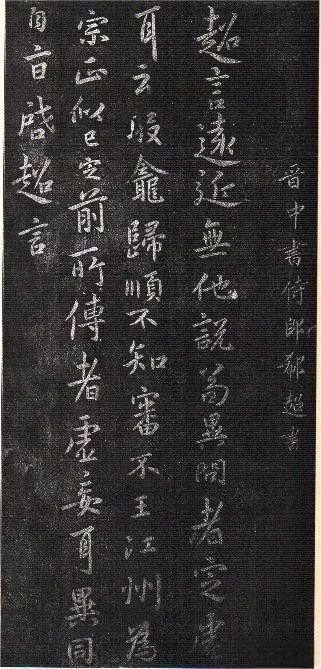 晋中書侍郎郗超書
超言遠近無他說前異問者定虛
耳云殷龕歸順不知審不王江州為
宗正似已定前所傳者虛妄耳異同
自百啓超言